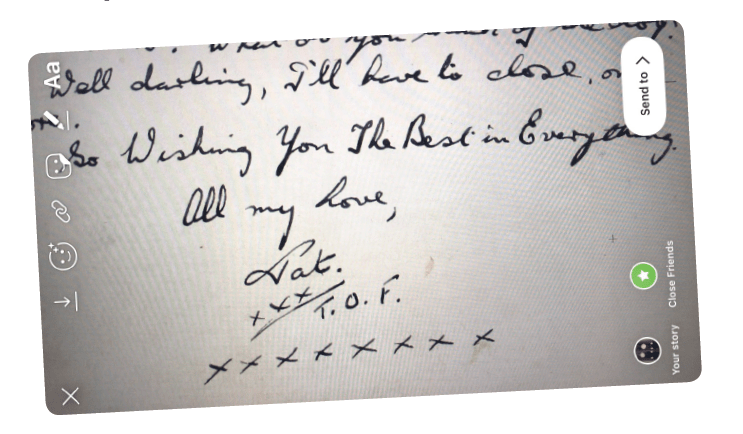 What do you think of the boy?
Well darling, I'll have to close, or
So Wishing You The Best in Everything.
All my Love,
Nat.
x x x T.O.F.
x x x x x x x x
Aa
Send to >
Close Friends
Your story